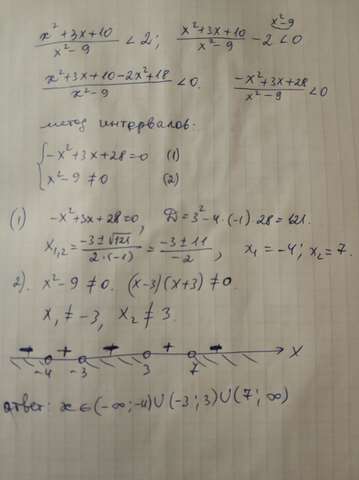 x²+3x+10 / x²-9 < 2; x²+3x+10 / x²-9 - 2 < 0 x²-9
x²+3x+10-2x²+18 / x²-9 < 0. -x²+3x+28 / x²-9 < 0
метод интервалов.
{ -x²+3x+28=0 (1)
x²-9 ≠ 0 (2)
(1) -x²+3x+28=0, D=3²-4·(-1) 28=121.
x₁,₂ = -3±√121 / 2·(-1) = -3±11 / -2, x₁=-4; x₂=7.
2). x²-9 ≠ 0. (x-3)(x+3) ≠ 0.
x₁ ≠ -3, x₂ ≠ 3.
- + - + -
-4 -3 3 7 x
ответ: x ∈ (-∞; -4) ∪ (-3; 3) ∪ (7; ∞)